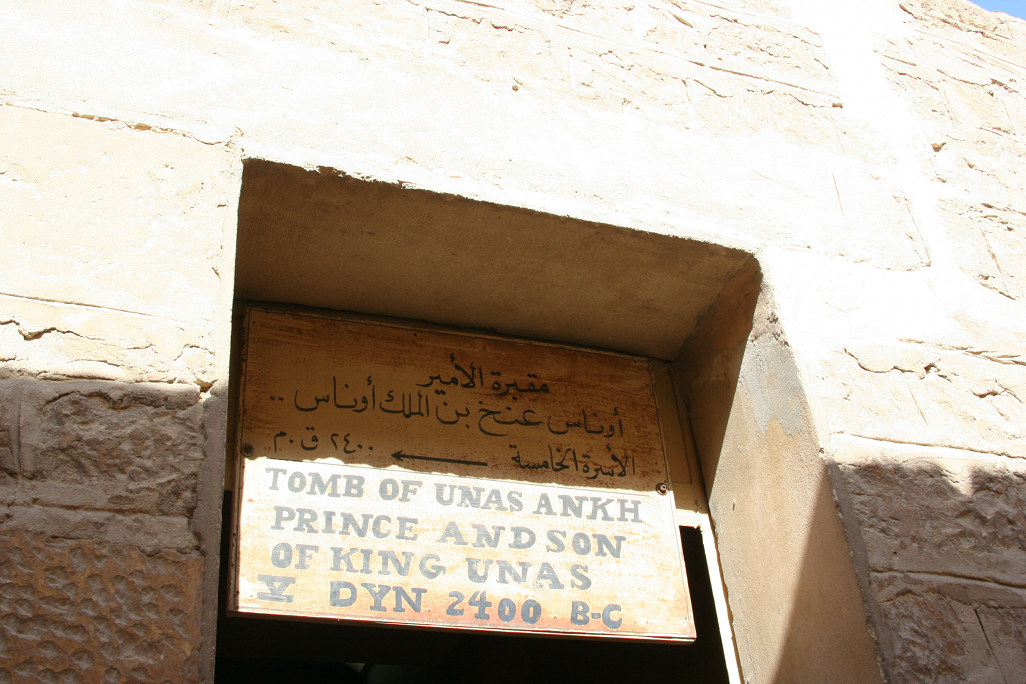 مقبرة الأمير
أوناس عنخ بن الملك أوناس ..
الأسرة الخامسة ← ٢٤٠٠ ق.م.
TOMB OF UNAS ANKH
PRINCE AND SON
OF KING UNAS
V DYN 2400 B-C